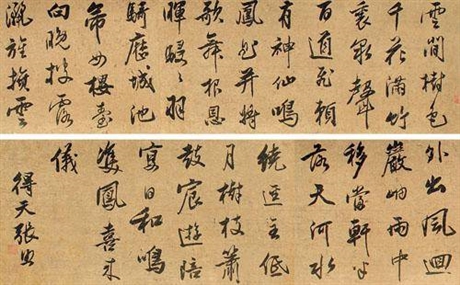 雲間樹色
千花滿竹
裏泉聲
百道飛
有神仙鳴
鳳曲并將
歌舞報恩
暉駸〻羽
騎歷城池
帝女樓臺
向晚披露
灑旌旗雲
外出風迴
巖岫雨中
移當軒半
落天河水
繞逕全低
月樹枝簫
鼓宸遊陪
宴日和鳴
雙鳳喜來
儀
得天張照